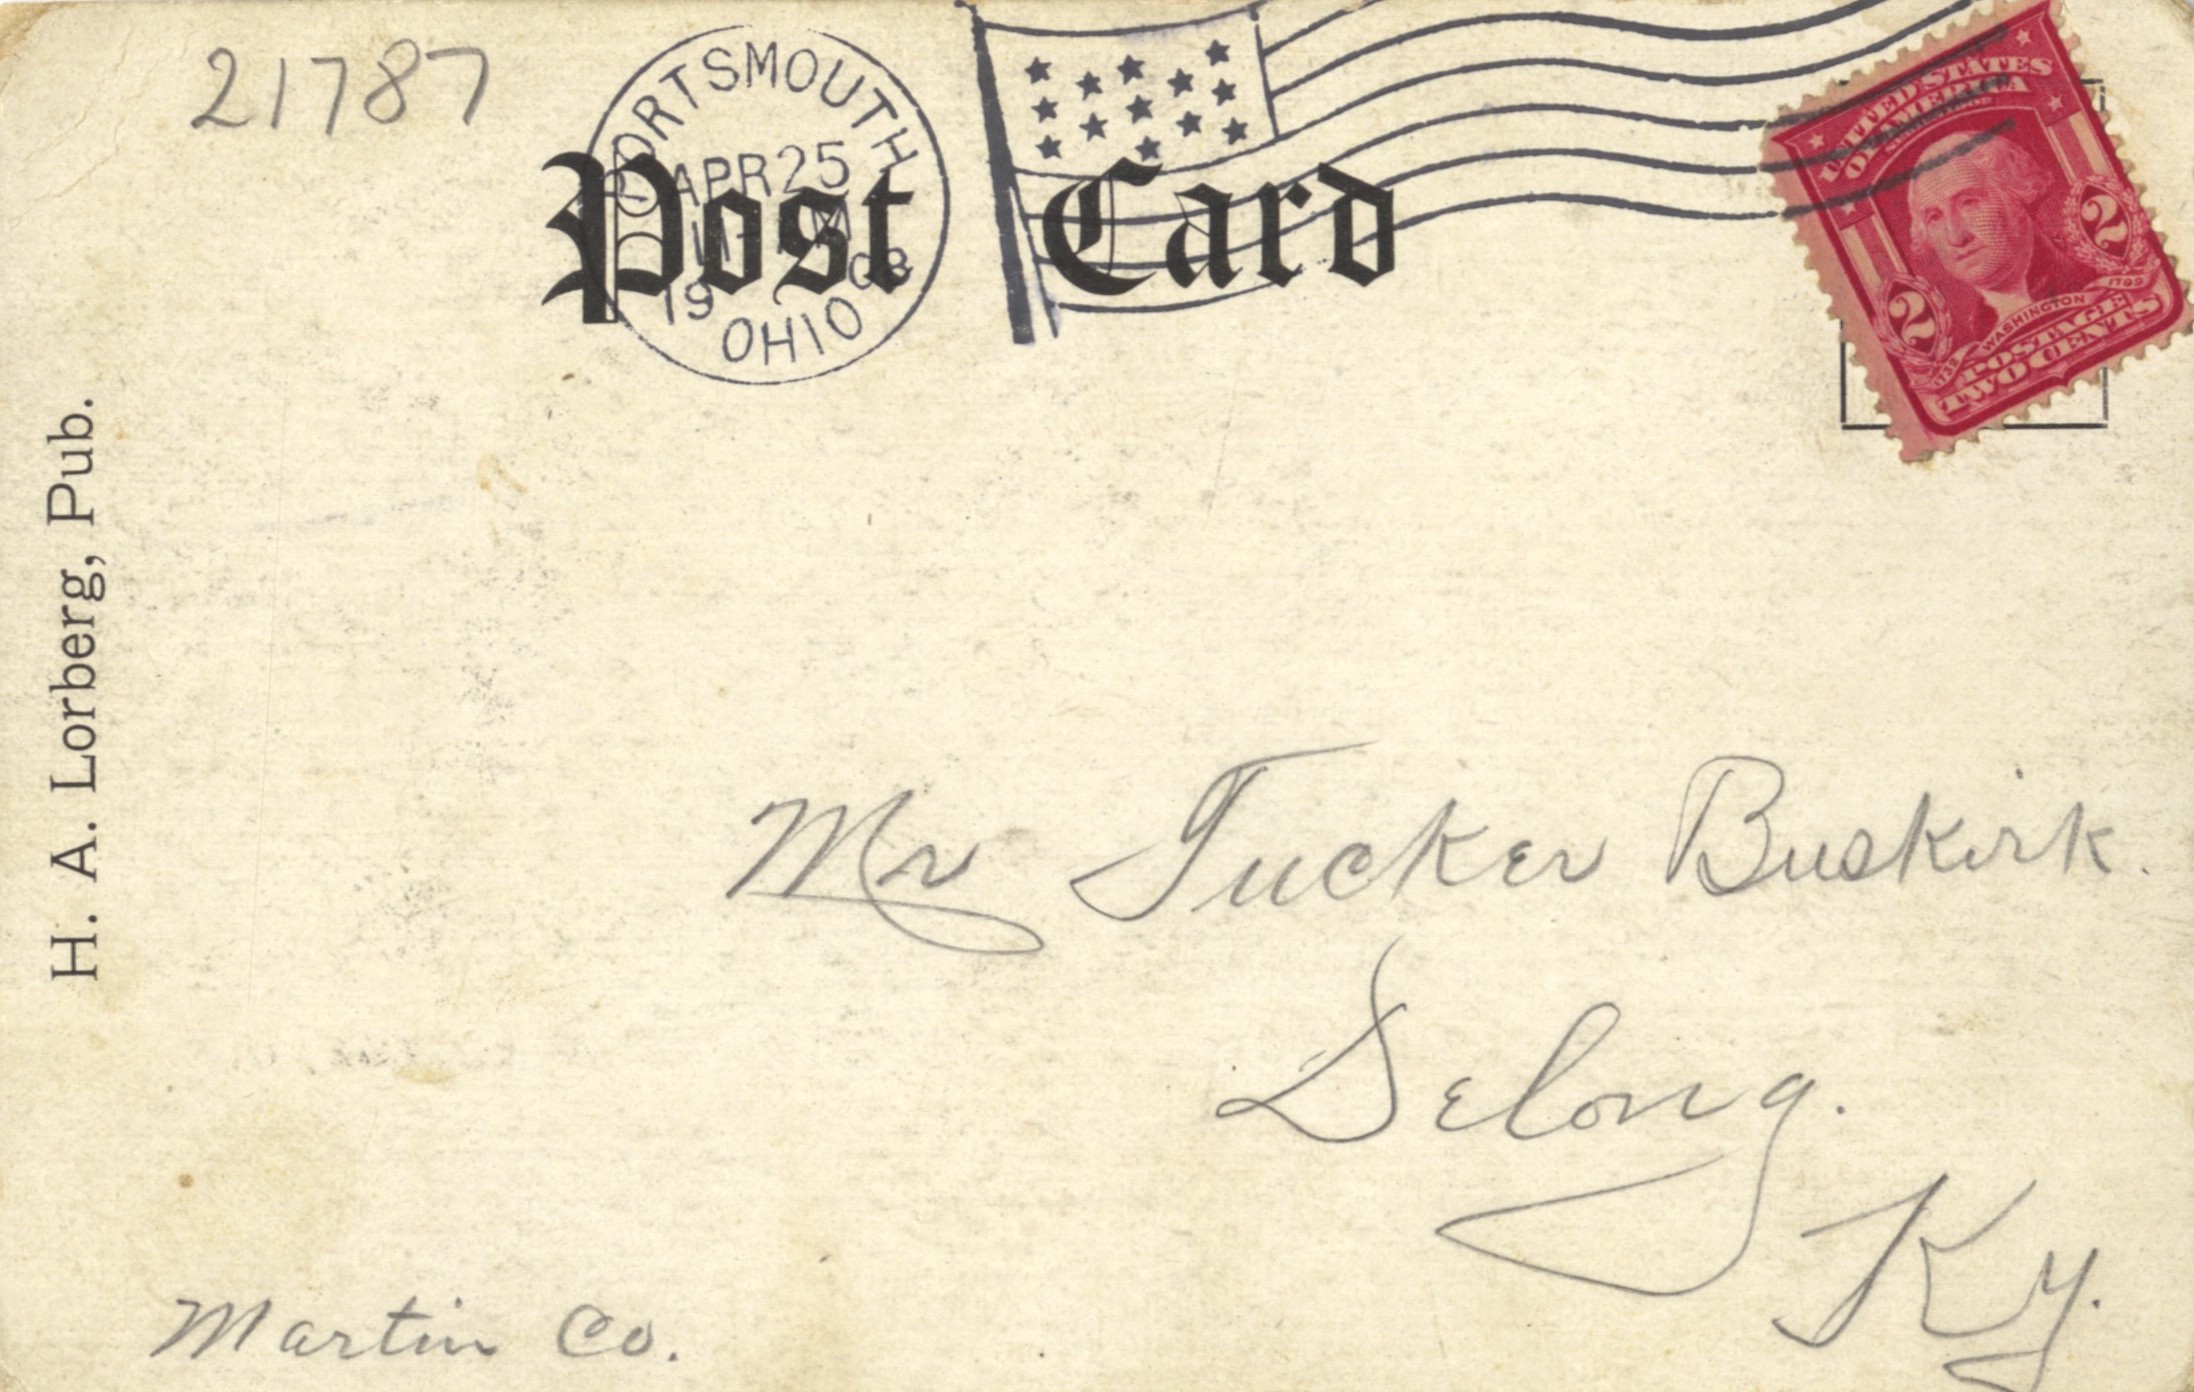 21787
PORTSMOUTH
APR 25
M
19 08
OHIO
Post Card
UNITED STATES
OF AMERICA
2 2
1732 WASHINGTON 1799
POSTAGE
TWO CENTS
H. A. Lorberg, Pub.
Mr Tucker Buskirk.
Selong.
Ky.
Martin Co.